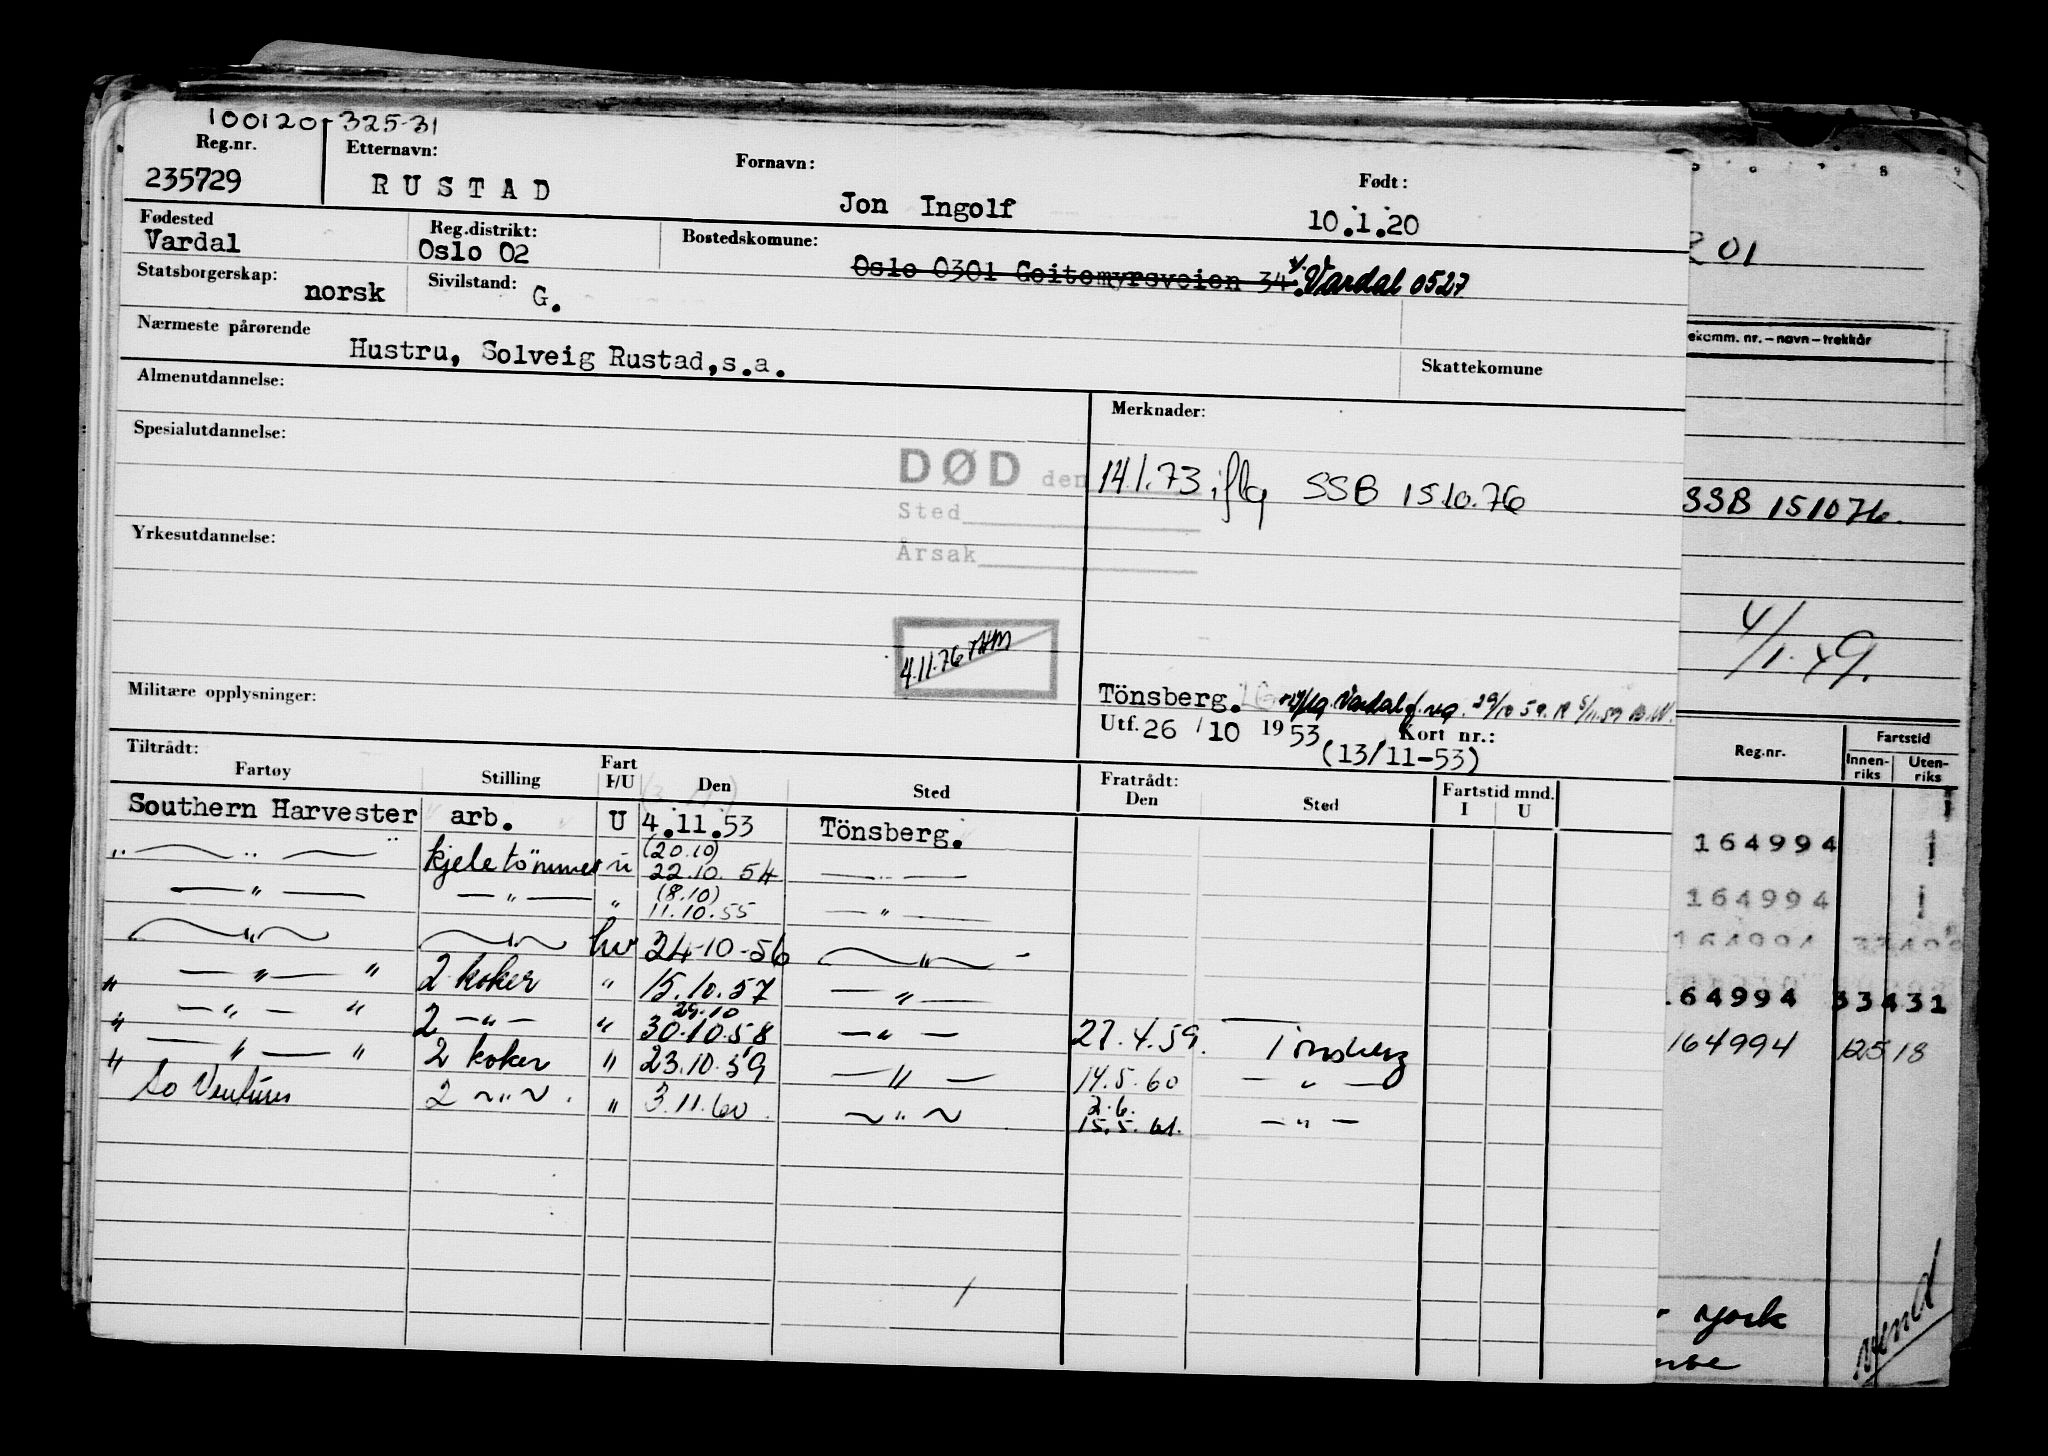 100120-32531
Reg.nr. Etternavn: Fornavn: Født:
235729 RUSTAD Jon Ingolf 10.1.20
Fødested Reg.distrikt: Bostedskomune:
Vardal Oslo 02 Oslo 0301 Geitemyrsveien 34. Vardal 0527
Statsborgerskap: norsk Sivilstand: G.
Nærmeste pårørende
Hustru, Solveig Rustad, s.a.
Skattekomune
Almenutdannelse:
Merknader:
Spesialutdannelse:
DØD den 14.1.73 iflg SSB 15.10.76
Sted
Yrkesutdannelse:
Årsak
4.11.76
Militære opplysninger:
Tönsberg. Vardal f.reg. 29/10 59.
Utf. 26 / 10 1953 Kort nr.:
(13/11-53)
Tiltrådt: Fratrådt:
Fartøy Stilling Fart I/U Den Sted Den Sted Fartstid mnd. I U
Southern Harvester arb. U 4.11.53 Tönsberg.
" kjeletömmer u (20.10) 22.10.54 — " —
— " — — " — " (8.10) 11.10.55 — " —
— " — — " — hv 24-10-56 — " —
" — " — " 2 koker " 15.10.57 — " —
" — " — " 2 — " — " 29.10 30.10.58 — " — 27.4.59. Tönsberg
" — " — " 2 koker " 23.10.59 — " — 14.5.60 — " —
So Venturer 2 — " — " 3.11.60 — " — 2.6. 15.5.61. — " —
01
ekomm. nr. – navn – trekkår
SSB 151076.
4/1.49.
Reg.nr. Fartstid
Innenriks Utenriks
164994
164994
164994
164994 33431
164994 12518
york
vend